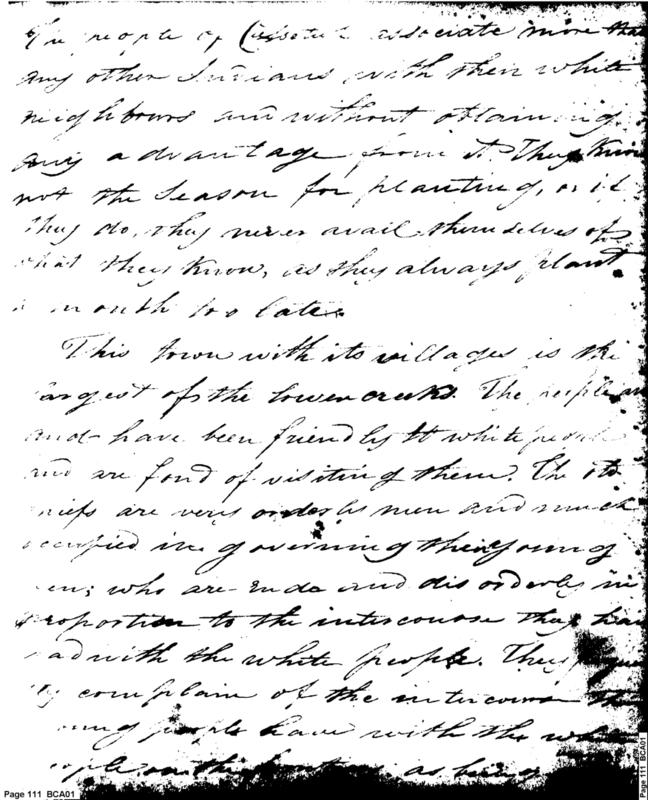 The people of Cussetuh associate more than
any other Indians with their white
neighbours and without obtaining
any advantage from it. They know
not the season for planting, or if
they do, they never avail themselves of
what they know, as they always plant
a month too late.
This town with its villages is the
largest of the lower creeks. The people are
and have been friendly to white people
and are fond of visiting them. The old
chiefs are very orderly men and much
occupied in governing their young
men; who are rude and disorderly in
proportion to the intercourse they have
had with the white people. They
complain of the intercourse
young people have with the white
people on the frontiers as being
Page 111 BCA01
Page 111 BCA01